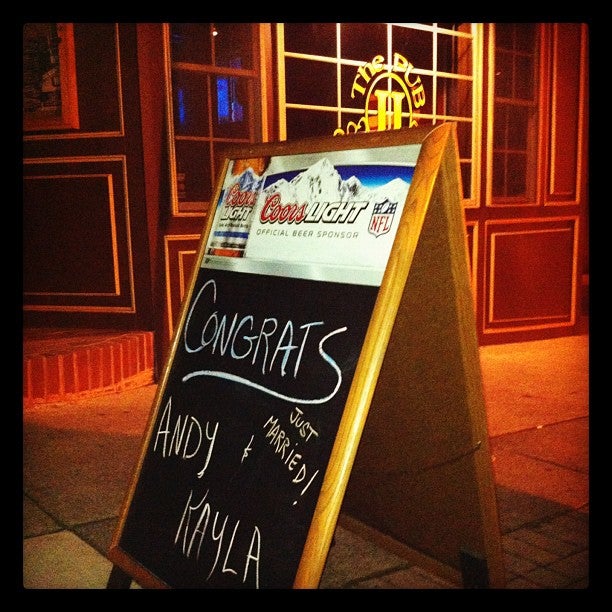 The PUB
II
Coors
LIGHT
Coors LIGHT
OFFICIAL BEER SPONSOR
NFL
CONGRATS
ANDY &
JUST
MARRIED!
KAYLA